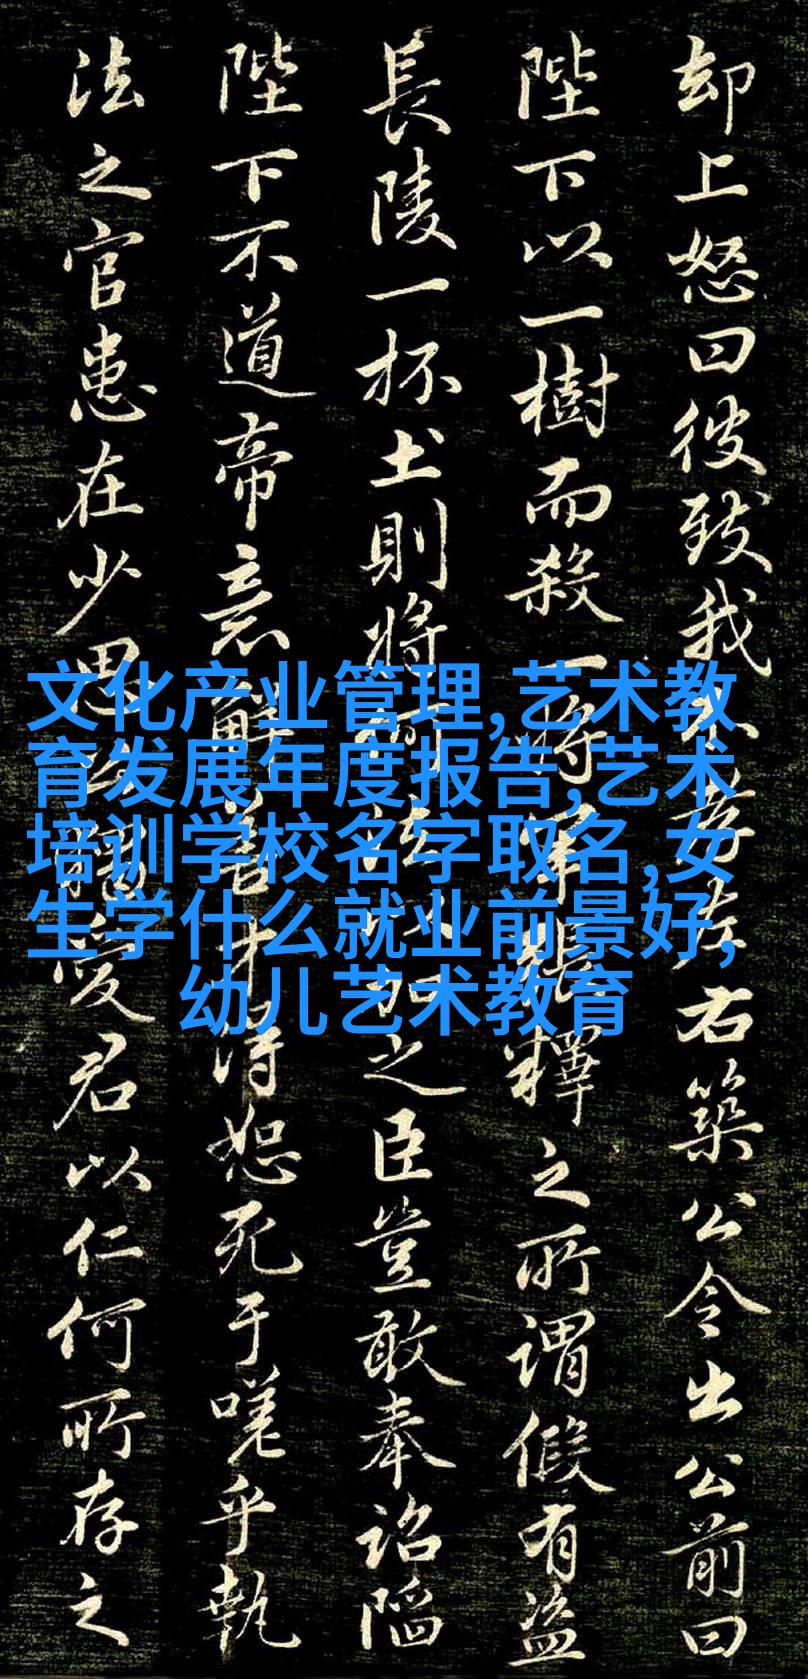 却上怒曰彼致我右築公令出公前曰
陛下以一樹而殺一將軍釋之所謂假有盜
長陵一杯土則將何之臣豈敢奉詔陷
陛下不道帝意解得恕死于嗟乎執
法之官患在少恩愛君以仁何所存之
文化产业管理,艺术教
育发展年度报告,艺术
培训学校名字取名,女
生学什么就业前景好,
幼儿艺术教育